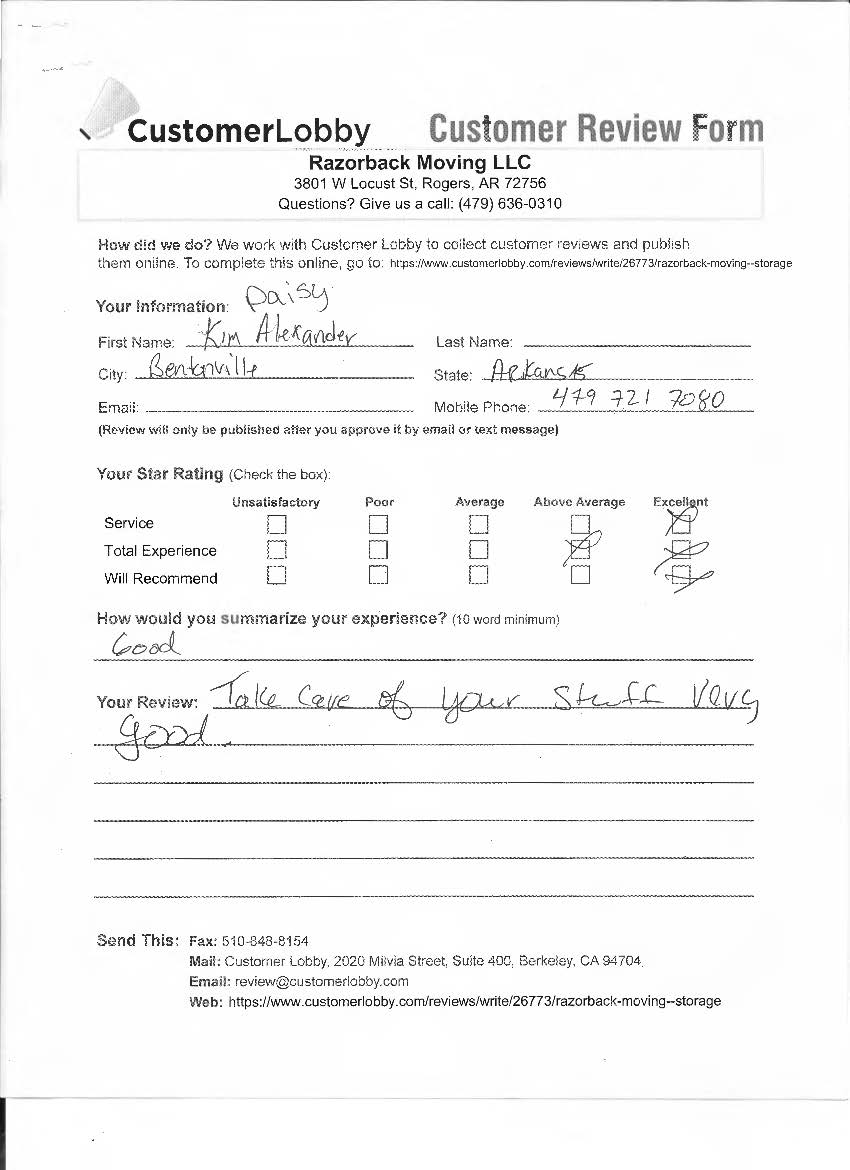 CustomerLobby Customer Review Form
Razorback Moving LLC
3801 W Locust St, Rogers, AR 72756
Questions? Give us a call: (479) 636-0310
How did we do? We work with Customer Lobby to collect customer reviews and publish
them online. To complete this online, go to: https://www.customerlobby.com/reviews/write/26773/razorback-moving--storage
Your Information: Daisy
First Name: Kim Alexander Last Name:
City: Bentonville State: Arkansas
Email: Mobile Phone: 479 721 7080
(Review will only be published after you approve it by email or text message)
Your Star Rating (Check the box):
Unsatisfactory Poor Average Above Average Excellent
Service
Total Experience
Will Recommend
How would you summarize your experience? (10 word minimum)
Good
Your Review: Take Care of your stuff very
good.
Send This: Fax: 510-848-8154
Mail: Customer Lobby, 2020 Milvia Street, Suite 400, Berkeley, CA 94704
Email: review@customerlobby.com
Web: https://www.customerlobby.com/reviews/write/26773/razorback-moving--storage